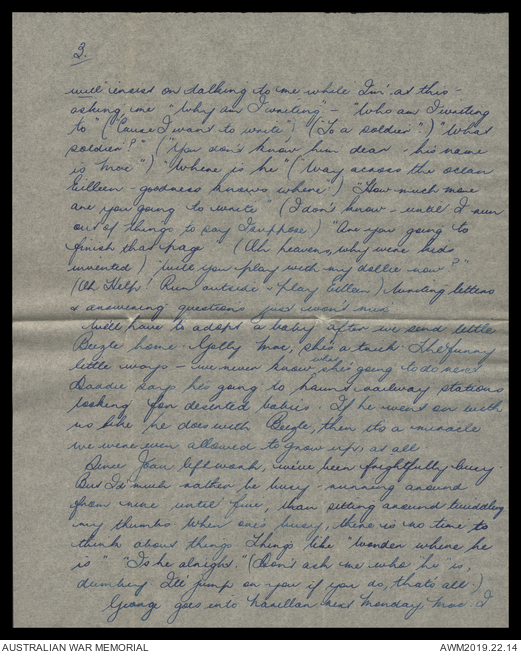 3.
will insist on talking to me while I'm at this -
asking me "Why am I writing" - "Who am I writing
to" ("Cause I want to write") ("To a soldier") "What
soldier?" ("You don't know him dear - his name
is Moe") "Where is he" ("Way across the ocean
Eilleen - goodness knows where") "How much more
are you going to write" (I don't know - until I run
out of things to say I suppose) "Are you going to
finish that page" (Oh heavens, why were kids
invented) "Will you play with my dollie now?"
(Oh Help! Run outside & play Eilleen) Writing letters
& answering questions just won't mix
We'll have to adopt a baby after we send little
Beezle home. Golly Moe, she's a trick. The funny
little ways - we never know what she's going to do next
Daddie says he's going to haunt railway stations
looking for deserted babies. If he went on with
us like he does with Beezle, then it's a miracle
we were even allowed to grow up, as all
Since Joan left work, we've been frightfully busy.
But I'd much rather be busy - running around
from nine until five, than sitting around twiddling
my thumbs. When one's busy, there is no time to
think about things. Things like "Wonder where he
is" "Is he alright." (Don't ask me who "he" is,
dumbey I'll jump on you if you do, that's all.)
George goes into next Monday, Moe. I
AUSTRALIAN WAR MEMORIAL
AWM2019.22.14